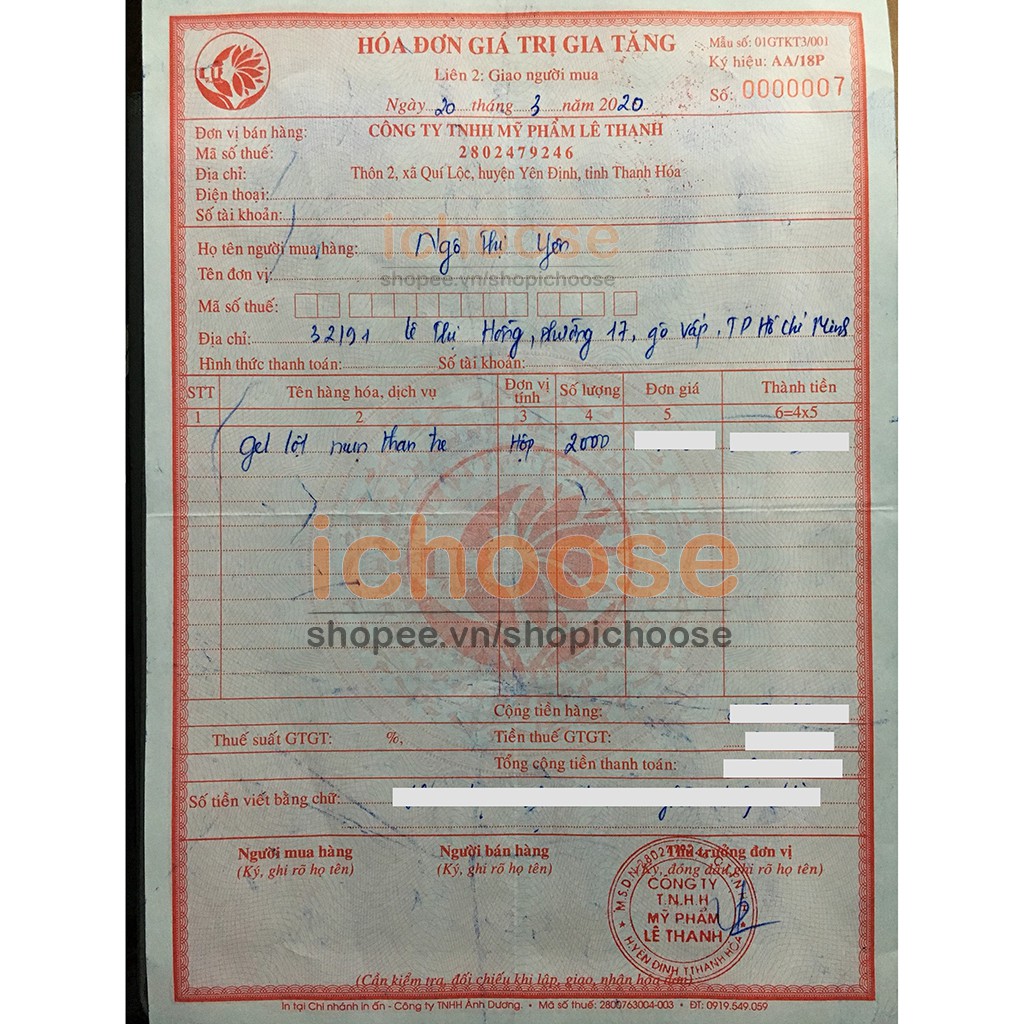 HÓA ĐƠN GIÁ TRỊ GIA TĂNG
Mẫu số: 01GTKT3/001
Liên 2: Giao người mua
Ký hiệu: AA/18P
Ngày 20 tháng 3 năm 2020
Số: 0000007
Đơn vị bán hàng: CÔNG TY TNHH MỸ PHẨM LÊ THANH
Mã số thuế: 2802479246
Địa chỉ: Thôn 2, xã Quí Lộc, huyện Yên Định, tỉnh Thanh Hóa
Điện thoại:
Số tài khoản:
ichoose
Họ tên người mua hàng: Ngô Thị Yến
shopee.vn/shopichoose
Tên đơn vị:
Mã số thuế:
Địa chỉ: 32/91 Lê Thị Hồng, phường 17, gò vấp, TP Hồ Chí Minh
Hình thức thanh toán: Số tài khoản:
STT Tên hàng hóa, dịch vụ Đơn vị tính Số lượng Đơn giá Thành tiền
1 2 3 4 5 6=4x5
gel lột mụn than tre Hộp 2000
ichoose
shopee.vn/shopichoose
Cộng tiền hàng:
Thuế suất GTGT: %, Tiền thuế GTGT:
Tổng cộng tiền thanh toán:
Số tiền viết bằng chữ:
Người mua hàng Người bán hàng Thủ trưởng đơn vị
(Ký, ghi rõ họ tên) (Ký, ghi rõ họ tên) (Ký, đóng dấu, ghi rõ họ tên)
CÔNG TY
T.N.H.H
MỸ PHẨM
LÊ THANH
H.YÊN ĐỊNH T.THANH HÓA
(Cần kiểm tra, đối chiếu khi lập, giao, nhận hóa đơn)
In tại Chi nhánh in ấn - Công ty TNHH Ánh Dương. • Mã số thuế: 2800763004-003 • ĐT: 0919.549.059